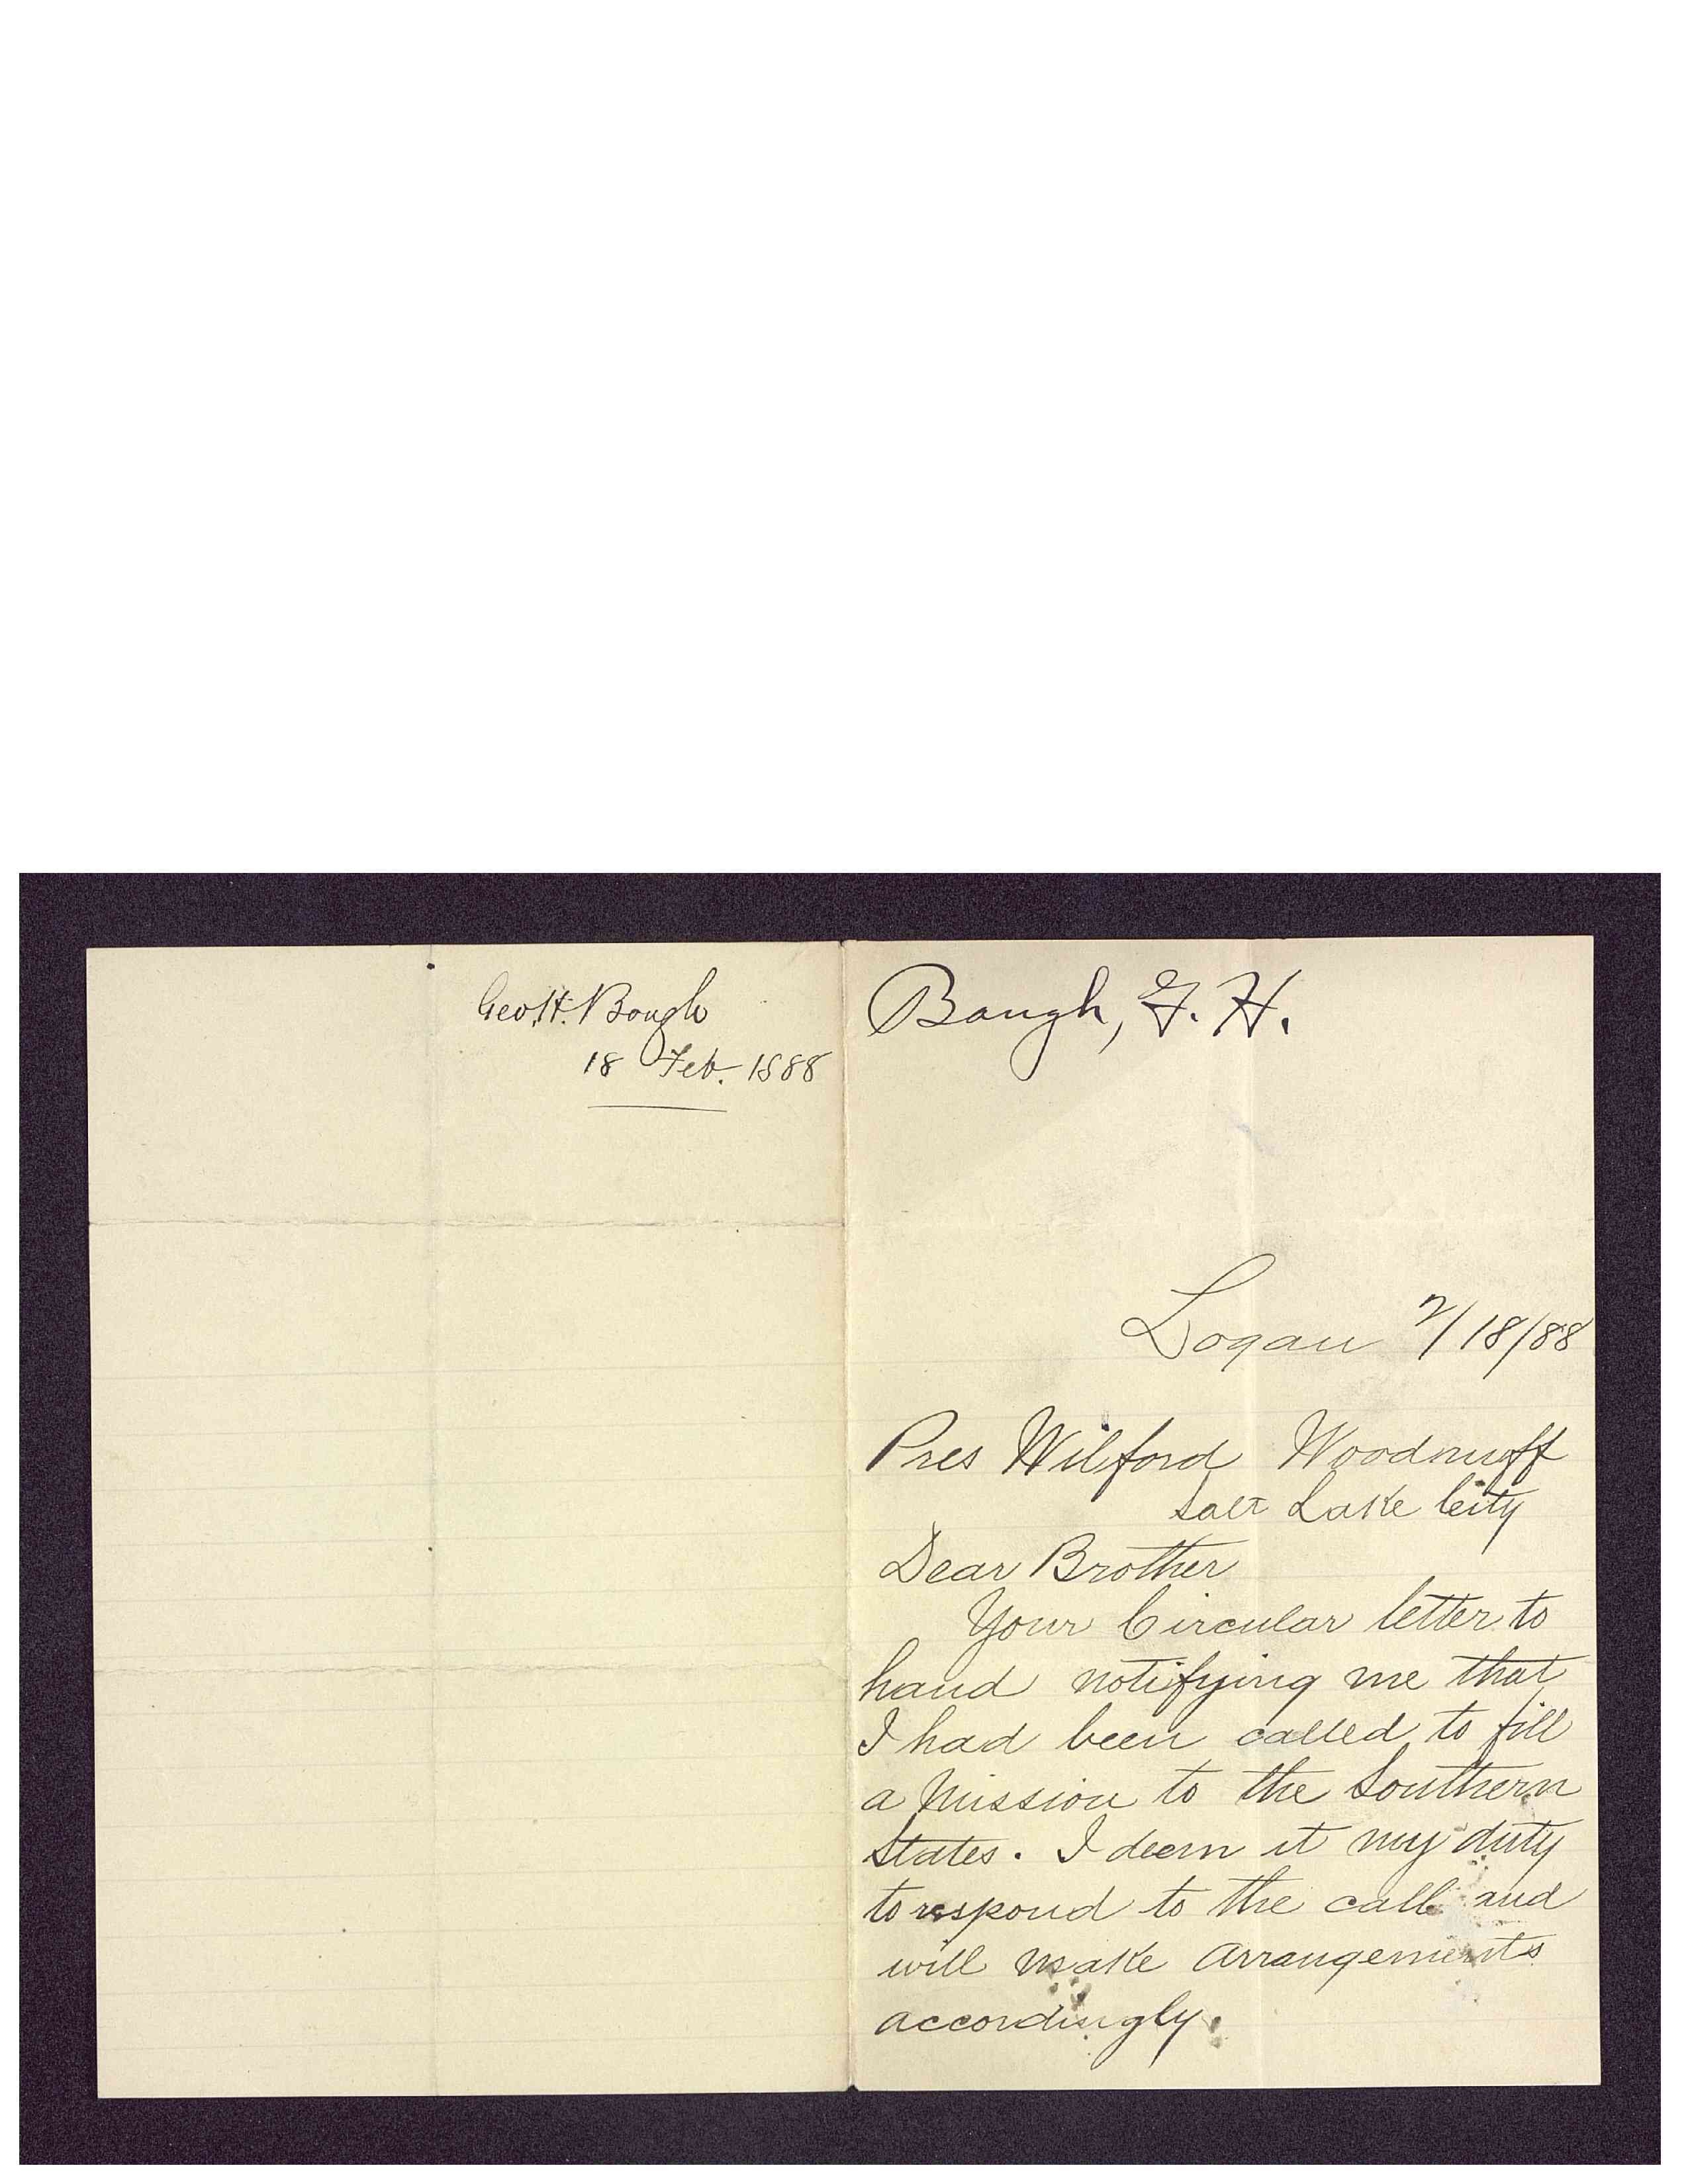 Geo. H. Baugh
18 Feb. 1888
Baugh, G. H.
Logan 2/18/88
Pres Wilford Woodruff
Salt Lake City
Dear Brother
Your Circular letter to
hand notifying me that
I had been called to fill
a Mission to the Southern
States. I deem it my duty
to respond to the call and
will make Arrangements
accordingly.